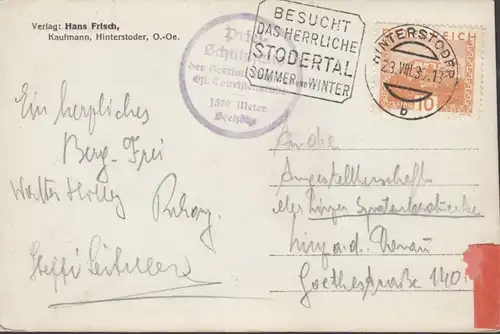 Verlag: Hans Frisch,
Kaufmann, Hinterstoder, O.-Oe.
BESUCHT
DAS HERRLICHE
STODERTAL
SOMMER UND WINTER
HINTERSTODER
23.VIII.3
b
REICH
10
Priel
der Sektion
Öst. Touristenklub
1370 Meter
Seehöhe
Ein herzliches
Berg-Frei
Walter
Steffi
An die
Angestelltenschaft
der Linzer
Linz a. d. Donau
Goethestraße 140